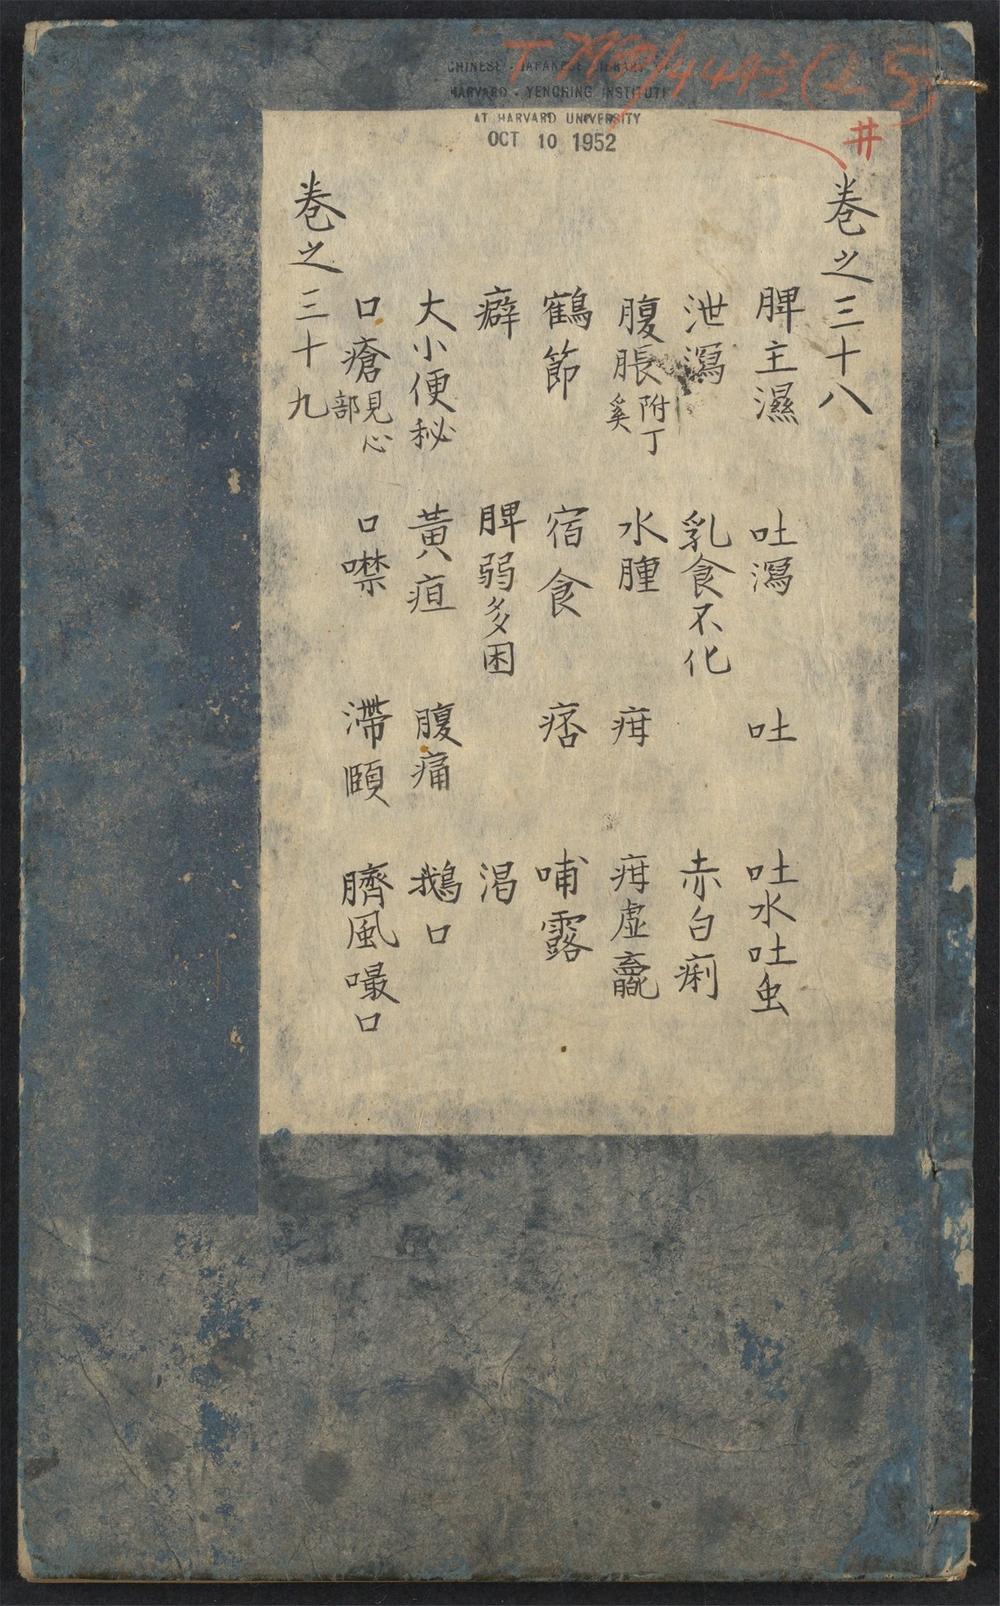 CHINESE - JAPANESE LIBRARY
HARVARD - YENCHING INSTITUTE
AT HARVARD UNIVERSITY
OCT 10 1952
卷之三十八
脾主濕 吐瀉 吐 吐水吐虫
泄瀉 乳食不化 赤白痢
腹脹附丁奚 水腫 疳 疳虛羸
鶴節 宿食 痞 哺露
癖 脾弱多困 渴
大小便秘 黃疸 腹痛 鵝口
口瘡見心部 口噤 滯頤 臍風嘬口
卷之三十九